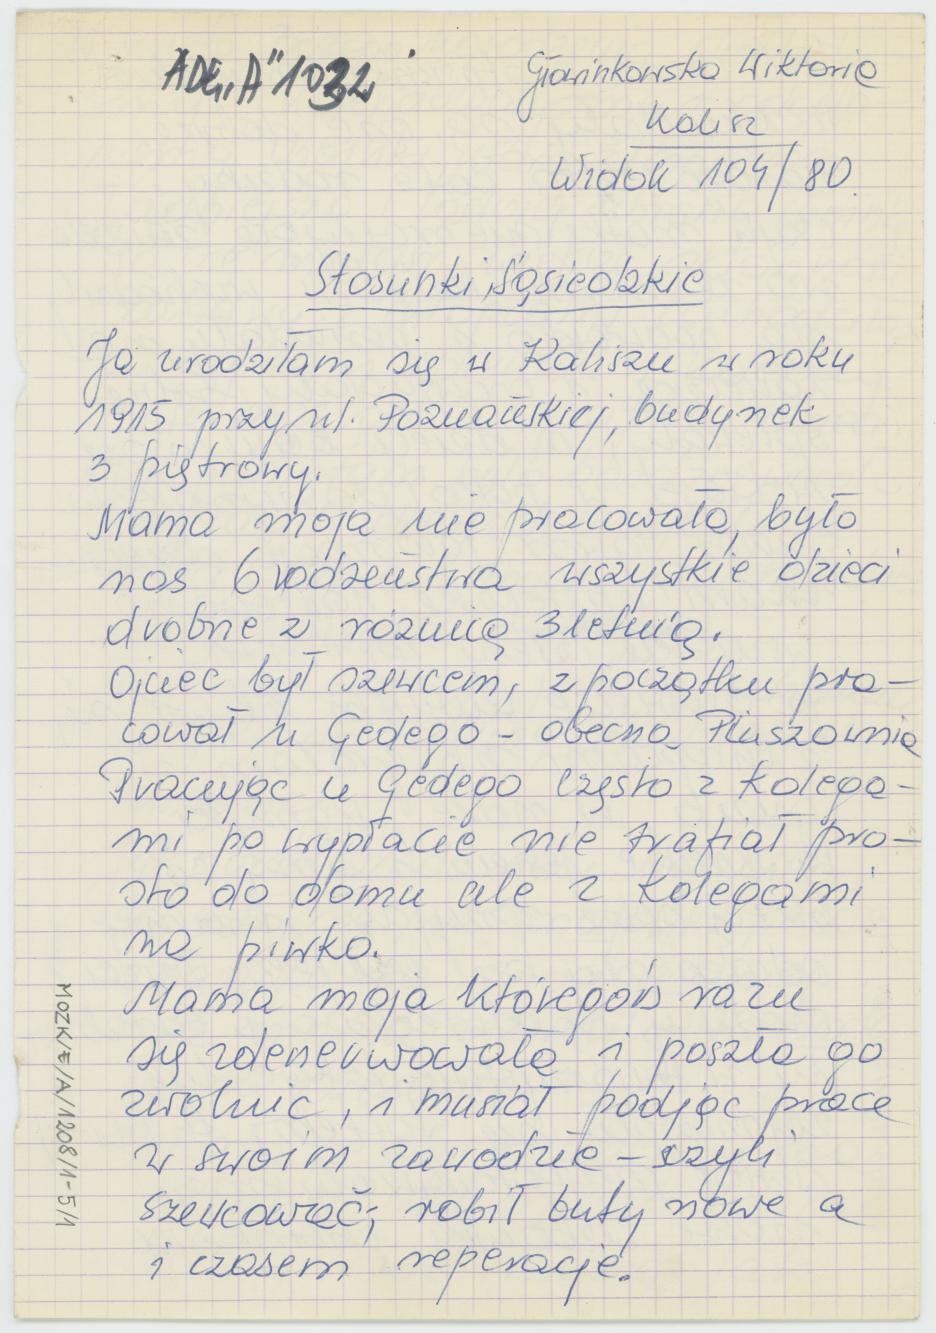 ADG „A" 1032
Głowinkowska Wiktoria
Kalisz
Widok 104/80.
Stosunki Sąsiedzkie
Ja urodziłam się w Kaliszu w roku
1915 przy ul. Poznańskiej, budynek
3 piętrowy.
Mama moja nie pracowała, było
nas 6 rodzeństwa wszystkie dzieci
drobne z różnicą 3 letnią.
Ojciec był szewcem, z początku pra-
cował u Gedego - obecna Pluszownia
Pracując u Gedego często z kolega-
mi po wypłacie nie trafiał pro-
sto do domu ale z kolegami
na piwko.
Mama moja któregoś razu
się zdenerwowała i poszła go
zwolnić, i musiał podjąc prace
w swoim zawodzie - czyli
szewcować; robił buty nowe a
i czasem reperacje.
MOZK/E/A/1208/1-5/1